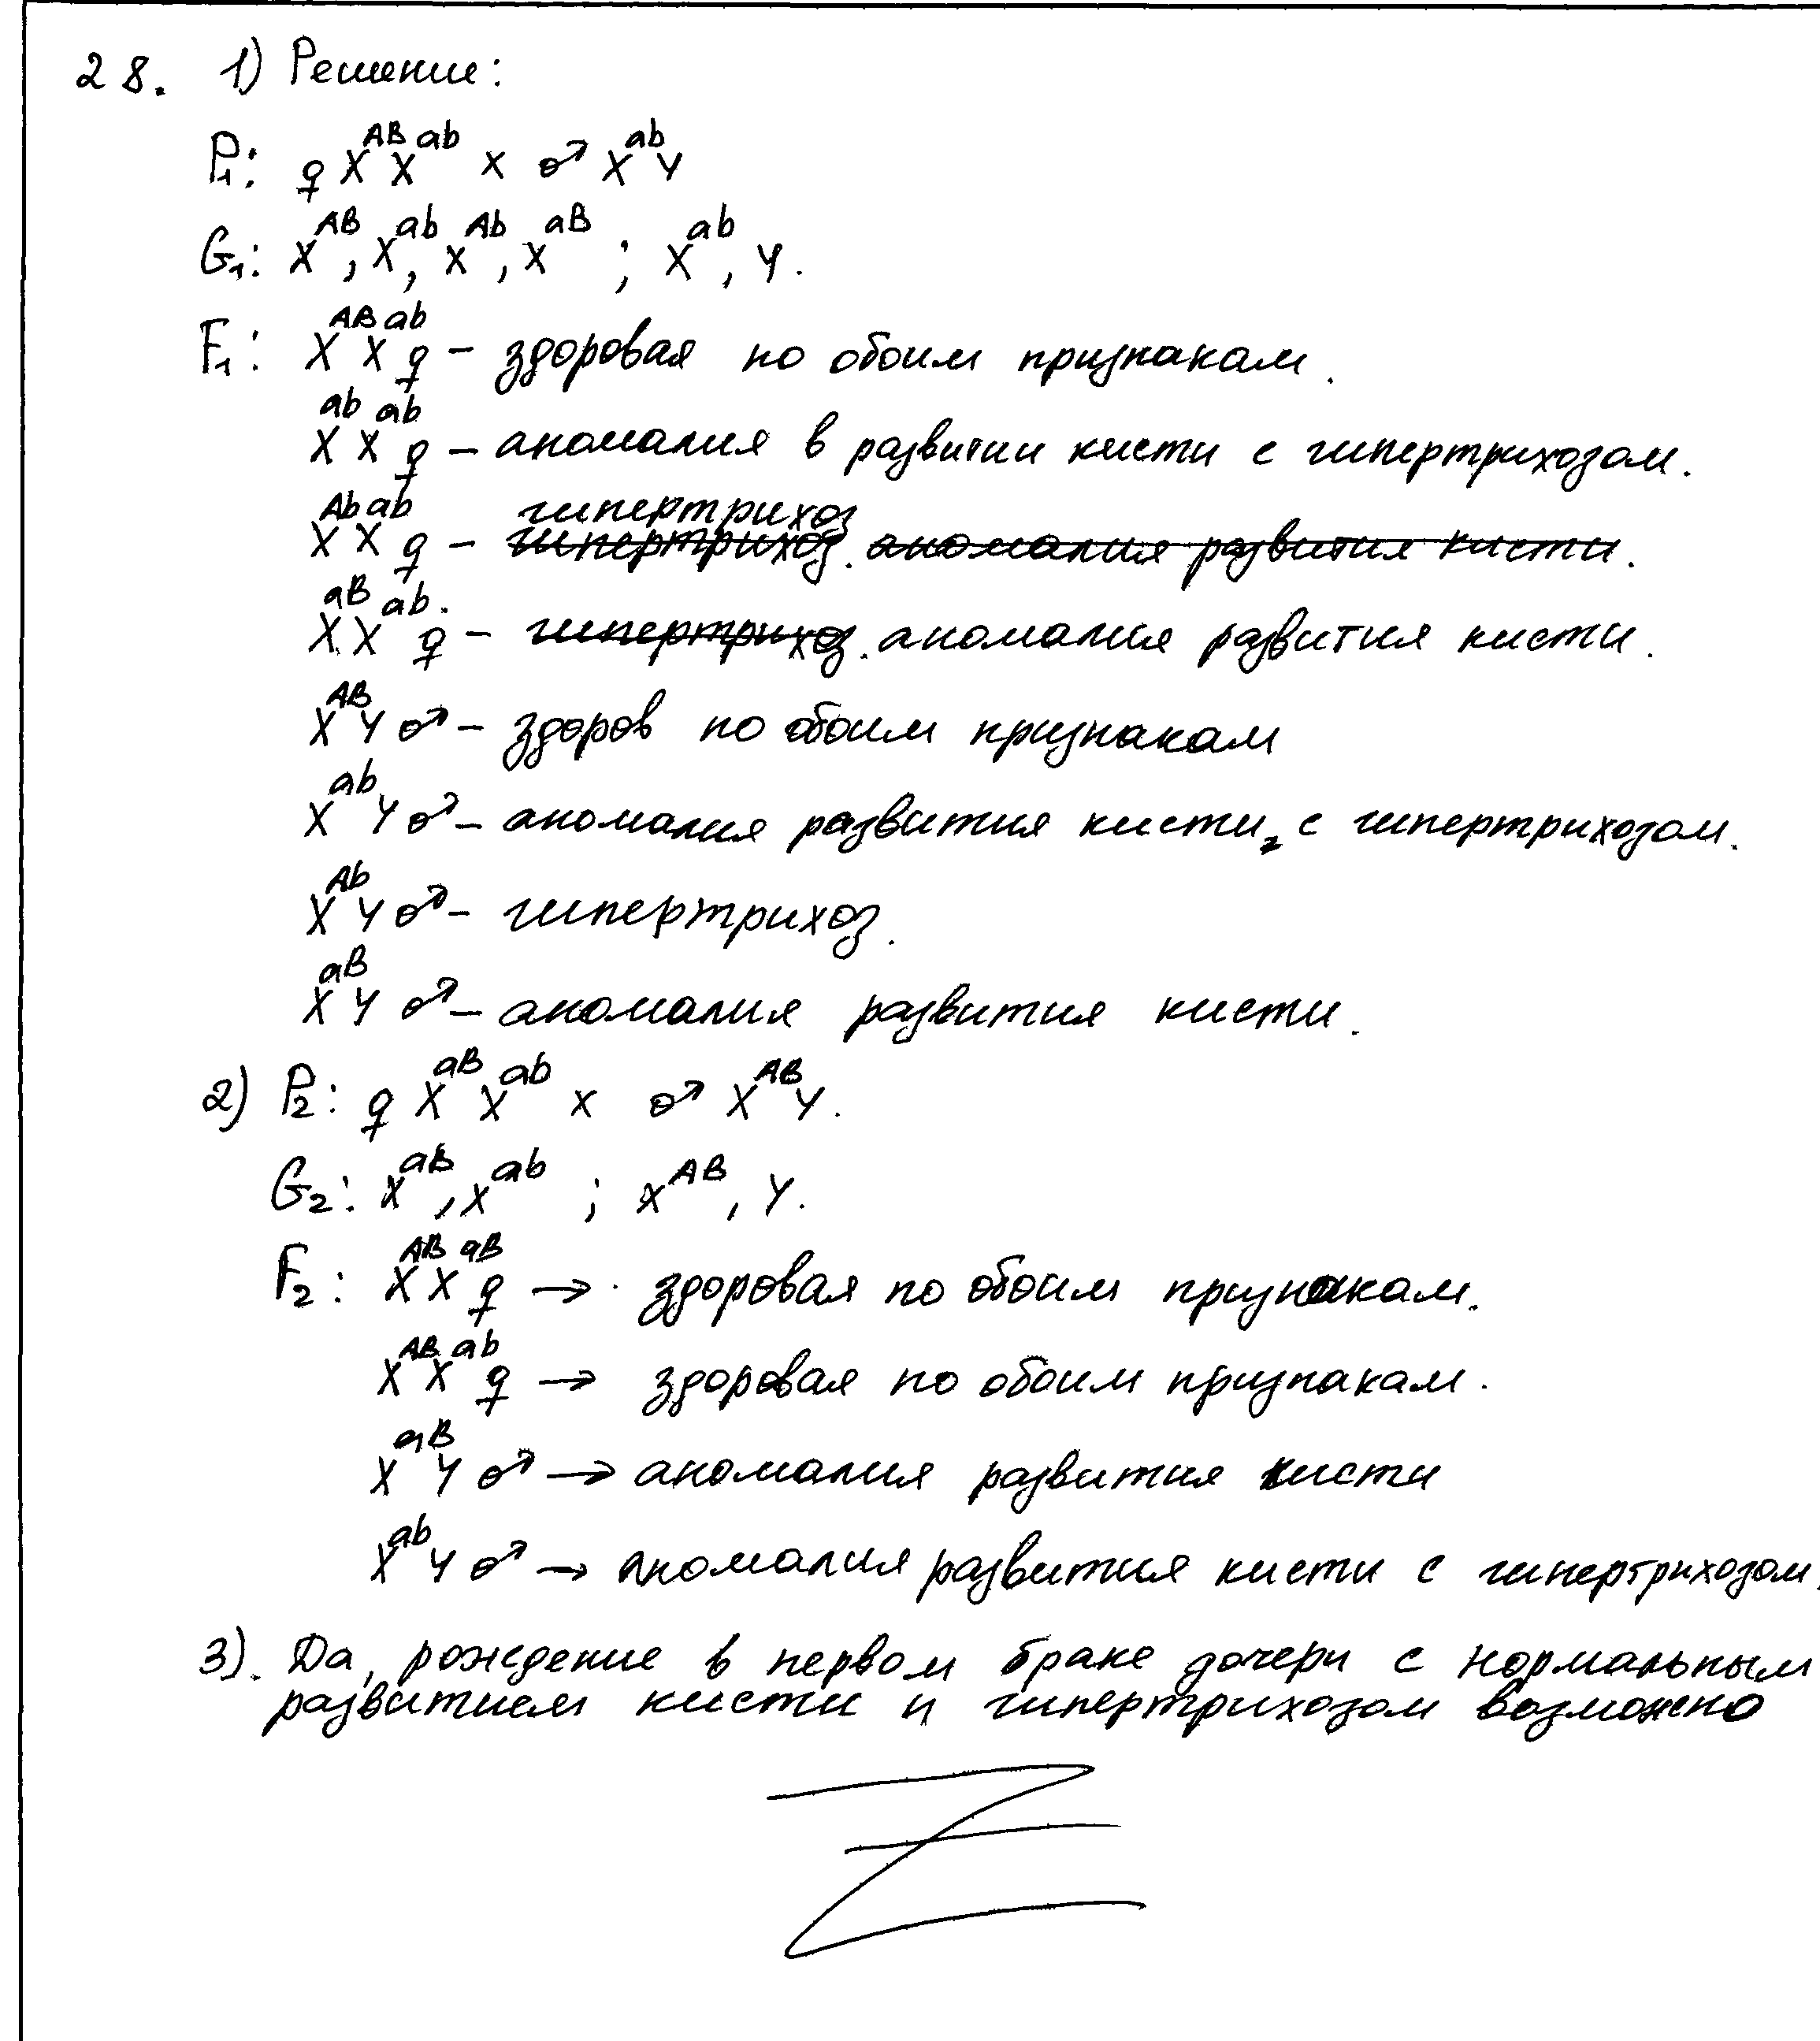 28. 1) Решение:
P₁: ♀ X^AB X^ab x ♂ X^ab Y
G₁: X^AB, X^ab, X^Ab, X^aB ; X^ab, Y.
F₁: X^AB X^ab ♀ – здоровая по обоим признакам.
X^ab X^ab ♀ – аномалия в развитии кисти с гипертрихозом.
X^Ab X^ab ♀ – гипертрихоз ~~гипертрихоз. аномалия развития кисти~~.
X^aB X^ab ♀ – ~~гипертрихоз~~. аномалия развития кисти.
X^AB Y ♂ – здоров по обоим признакам
X^ab Y ♂ – аномалия развития кисти, с гипертрихозом.
X^Ab Y ♂ – гипертрихоз.
X^aB Y ♂ – аномалия развития кисти.
2) P₂: ♀ X^aB X^ab x ♂ X^AB Y.
G₂: X^aB, X^ab ; X^AB, Y.
F₂: X^AB X^aB ♀ → здоровая по обоим признакам.
X^AB X^ab ♀ → здоровая по обоим признакам.
X^aB Y ♂ → аномалия развития кисти
X^ab Y ♂ → аномалия развития кисти с гипертрихозом.
3). Да, рождение в первом браке дочери с нормальным
развитием кисти и гипертрихозом возможно